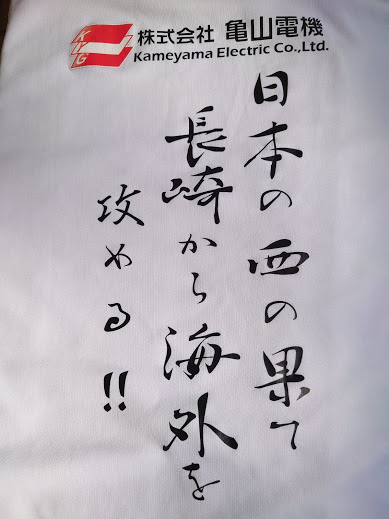 KYG
株式会社 亀山電機
Kameyama Electric Co.,Ltd.
日本の西の果て
長崎から海外を
攻める!!